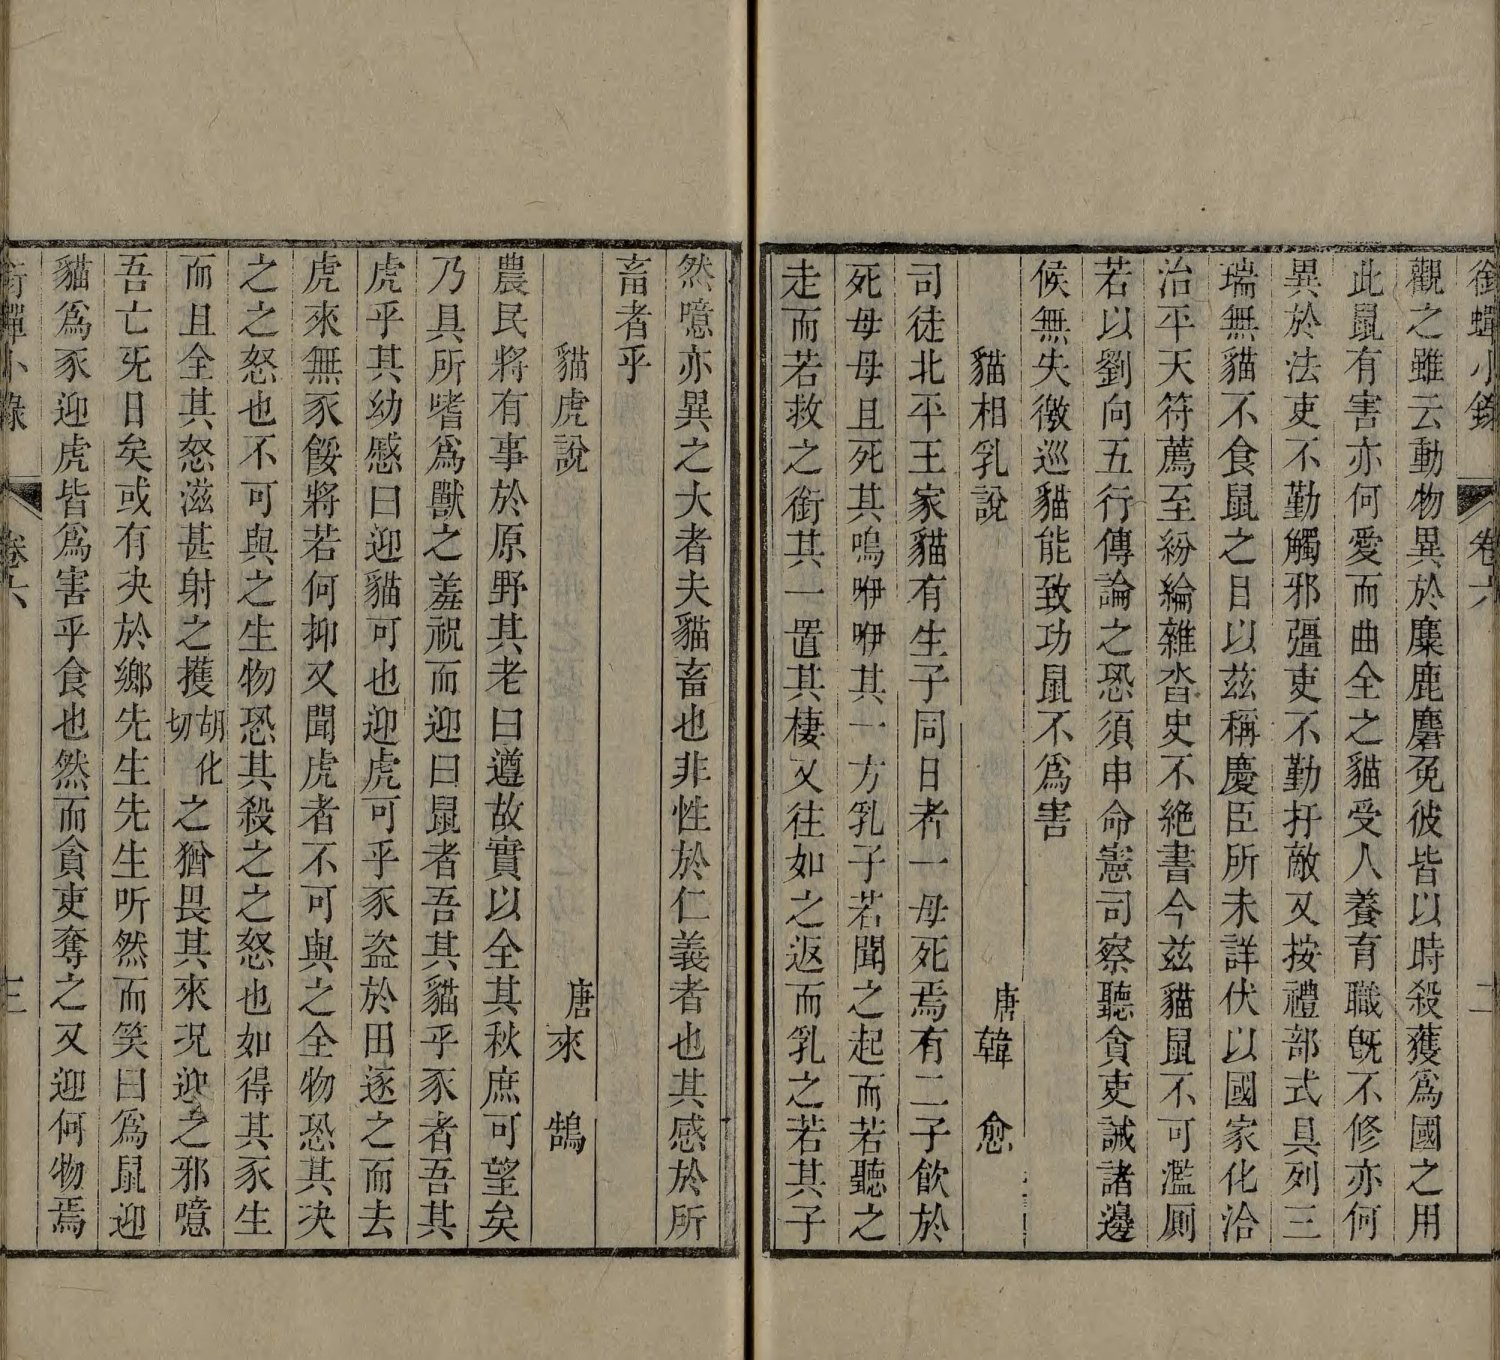 銜蟬小錄 卷六 二
觀之雖云動物異於麋鹿麏兔彼皆以時殺獲爲國之用
此鼠有害亦何愛而曲全之貓受人養育職旣不修亦何
異於法吏不勤觸邪彊吏不勤扞敵又按禮部式具列三
瑞無貓不食鼠之目以茲稱慶臣所未詳伏以國家化洽
治平天符薦至紛綸雜沓史不絶書今茲貓鼠不可濫厠
若以劉向五行傳論之恐須申命憲司察聽貪吏誡諸邊
候無失徼巡貓能致功鼠不爲害
貓相乳說 唐韓愈
司徒北平王家貓有生子同日者一母死焉有二子飲於
死母母且死其鳴咿咿其一方乳子若聞之起而若聽之
走而若救之銜其一置其棲又往如之返而乳之若其子
然噫亦異之大者夫貓畜也非性於仁義者也其感於所
畜者乎
貓虎說 唐來鵠
農民將有事於原野其老曰遵故實以全其秋庶可望矣
乃具所嗜爲獸之羞祝而迎曰鼠者吾其貓乎豕者吾其
虎乎其幼慼曰迎貓可也迎虎可乎豕盜於田逐之而去
虎來無豕餒將若何抑又聞虎者不可與之全物恐其决
之之怒也不可與之生物恐其殺之之怒也如得其豕生
而且全其怒滋甚射之擭胡化切之猶畏其來況迎之邪噫
吾亡死日矣或有决於鄉先生先生听然而笑曰爲鼠迎
貓爲豕迎虎皆爲害乎食也然而貪吏奪之又迎何物焉
銜蟬小錄 卷六 三